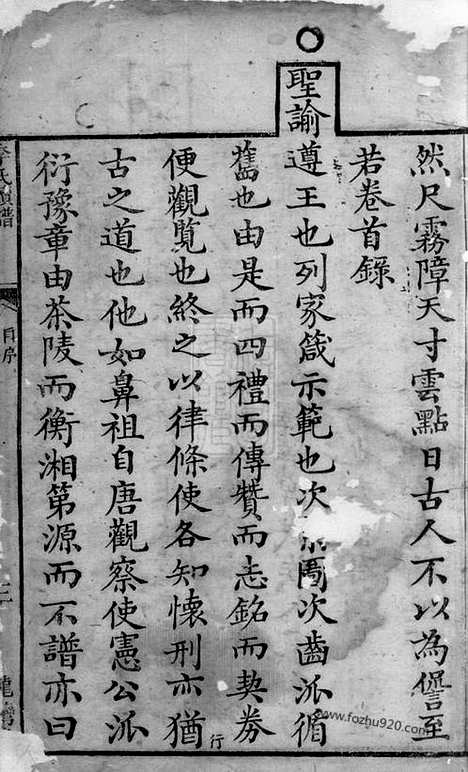 然尺霧障天寸雲點日古人不以為僭至
若卷首錄
聖諭遵王也列家箴示範也次系圖次齒派循
舊也由是而四禮而傳贊而志銘而契券
便觀覽也終之以律條使各知懷刑亦猶行
古之道也他如鼻祖自唐觀察使憲公派
衍豫章由茶陵而衡湘第源而不譜亦曰
氏
譜
目序
www.fozhu920.com